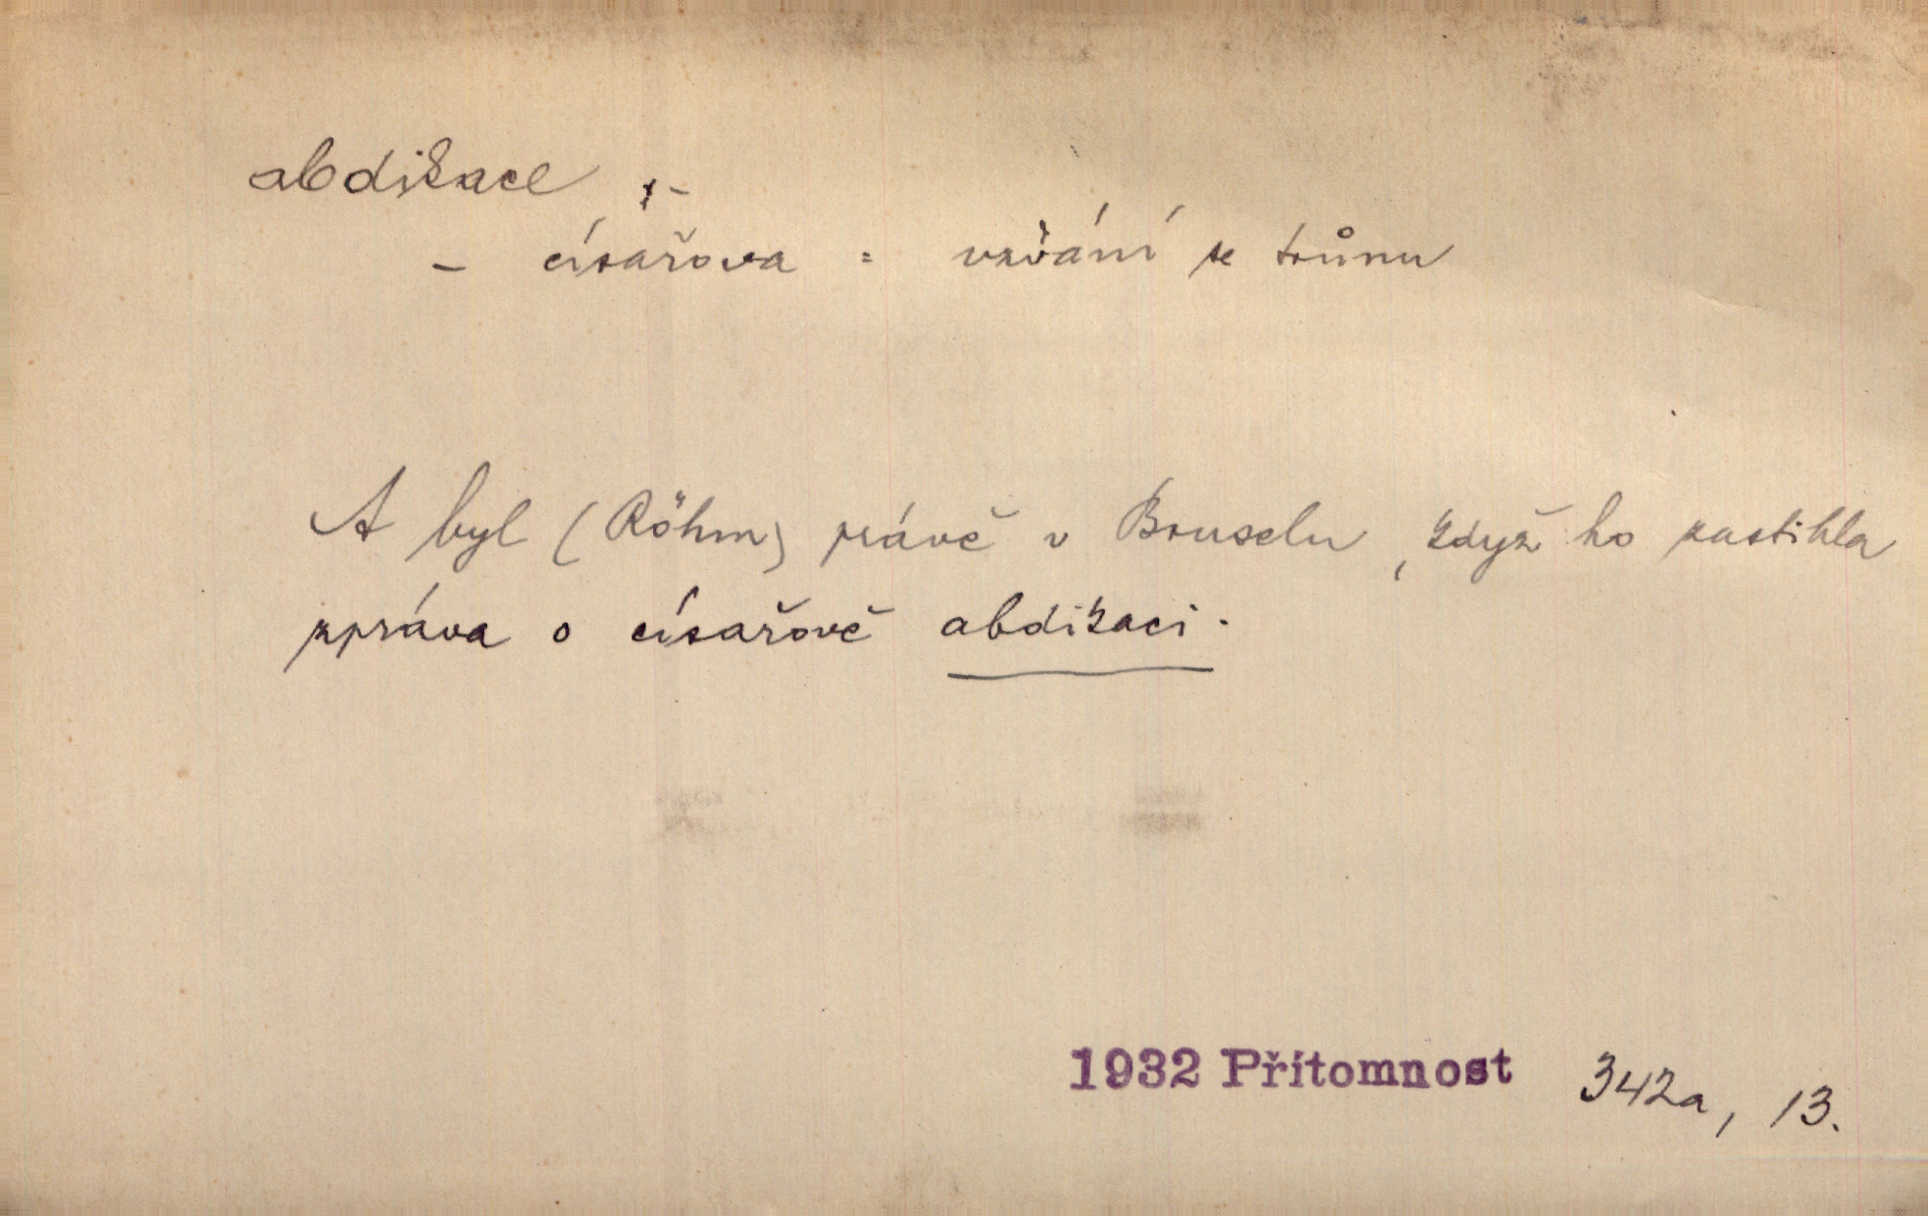 abdikace, ž-
– císařova = vzdání se trůnu
A byl (Röhm) právě v Bruselu, když ho zastihla
zpráva o císařově abdikaci.
1932 Přítomnost 342a, 13.